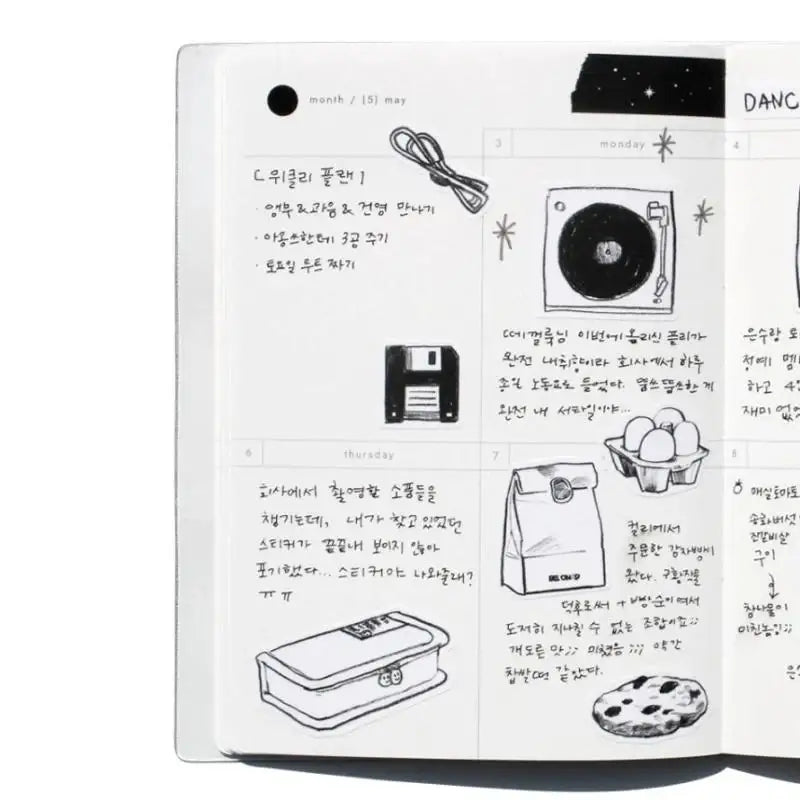 month / [5] may
DANC
3
monday
4
[위클리 플랜]
· 앵무 & 고음 & 건영 만나기
· 아몽쓰한테 3공 주기
· 토요일 루트 짜기
떼껄룩님 이번에 올리신 플리가
완전 내취향이라 회사에서 하루
종일 노동요로 들었다. 열쓰뜹쓰한 게
완전 내 스타일이야...
은수랑
정예
하고
재미 없
6
thursday
7
8
회사에서 촬영할 소품들을
챙기는데, 내가 찾고 있었던
스티커가 끝끝내 보이지 않아
포기했다... 스티커야 나와줄래?
ㅠㅠ
컬리에서
주문한 감자빵이
왔다. 구황작물
덕후로써 + 빵순이여서
도저히 지나칠 수 없는 조합이죠;;
개도른 맛;; 미쳤음;;; 약간
찹쌀떡 같았다.
매실토마토
송화버섯
진갈비살
구이
참나물이
미친놈임;;
은수